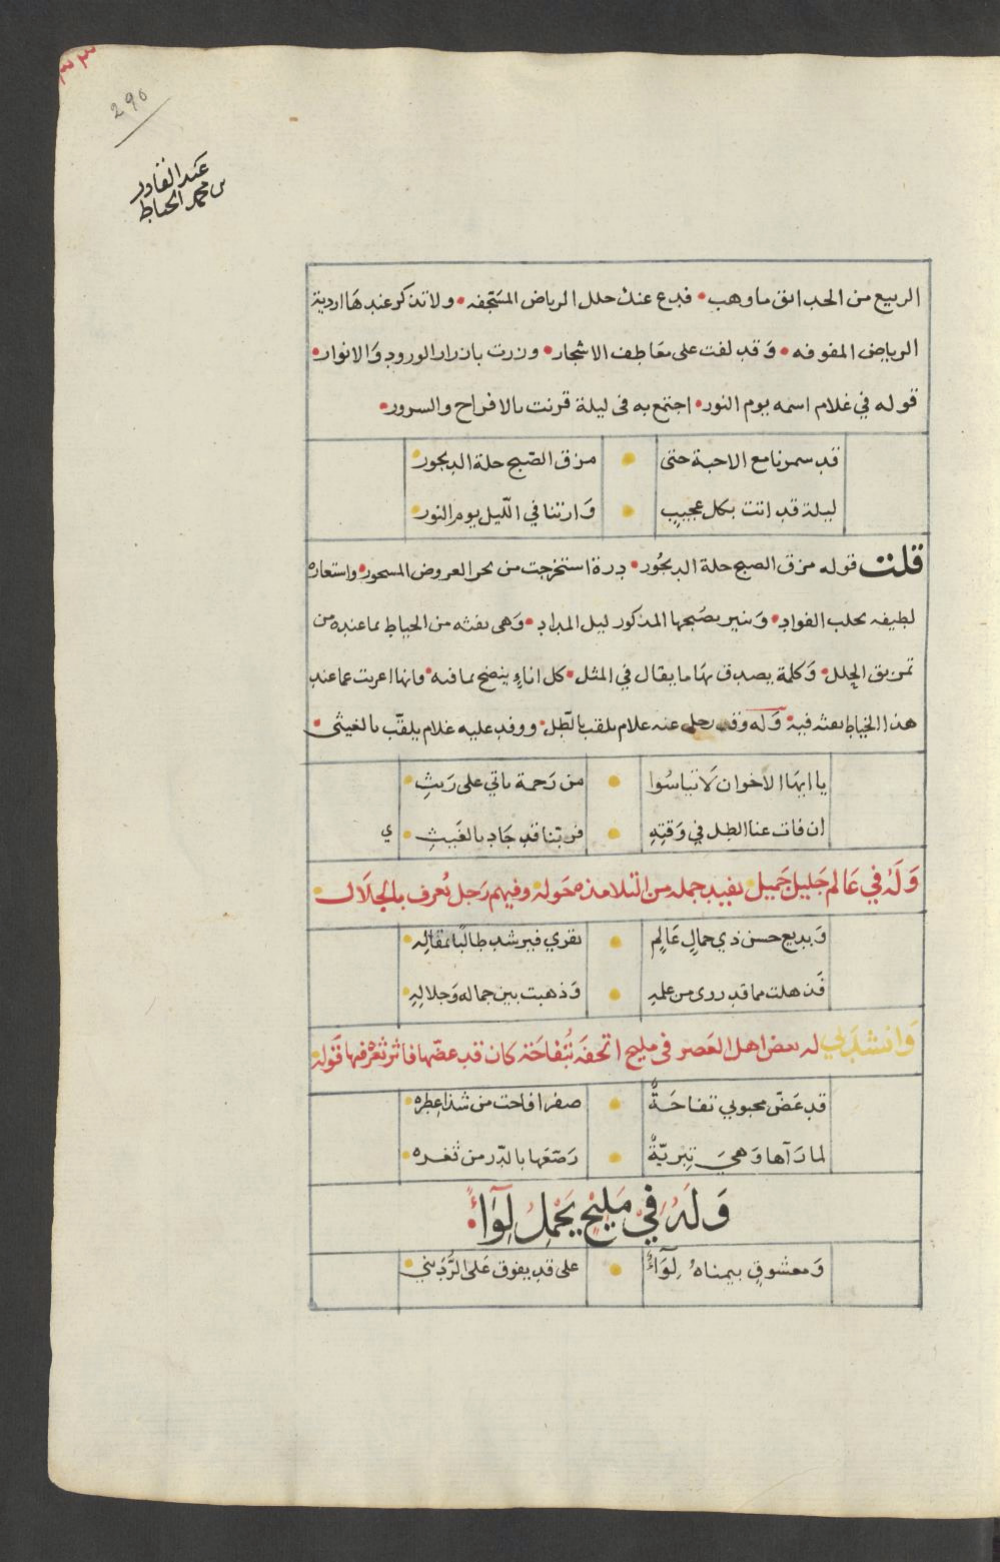 ٣٣
290
عبد القادر
بن محمد الخياط
الربيع من الحدائق ما وهب • فدع عنك حلل الرياض المستجفه • ولا تذكر عندها اردية
الرياض المفوفه • وقد لفت على معاطف الاشجار • وزرت بازرار الورود والانوار •
قوله في غلام اسمه يوم النور • اجتمع به في ليلة قرنت بالافراح والسرور •
قد سمرنا مع الاحبة حتى • مزق الصبح حلة الديجور •
ليلة قد اتت بكل عجيب • وارتنا في الليل يوم النور •
قلت قوله مزق الصبح حلة الديجور • درة استخرجت من بحر العروض المسجور • واستعارة
لطيفه بحلب الفواد • وينير بصبحها المذكور ليل المداد • وهى نفثه من الخياط بما عنده من
تمزيق الحلل • وكلمة يصدق بها ما يقال في المثل • كل اناء ينضح بما فيه • فانها اعربت عما عند
هذا الخياط بعثه فيه • وله وقد رحل عنه غلام يلقب بالطل • ووفد عليه غلام يلقب بالغيثى •
يا ايها الاخوان لا تياسوا • من رحمة تاتي على ريث •
ان فات عنا الطل في وقته • فربنا قد جاد بالغيث • ي
وله في عالم جليل جميل • يفيد جمله من التلامذه حوله • وفيهم رجل يعرف بالجلال •
وبديع حسن ذي جمال عالم • يقري فيرشد طالبا بمقاله •
فذهلت مما قد روى من علمه • وذهبت بين جماله وجلاله •
وانشدني له بعض اهل العصر في مليح اتحفه بتفاحة كان قد عضها فاثر ثغره فيها قوله •
قد عض محبوبي تفاحة • صفرا فاحت من شذا عطره •
لما رآها وهي تبرية • رصعها بالدر من ثغره •
وله في مليح يحمل لواء •
ومعشوق بيمناه لواء • على قد يفوق على الرديني •